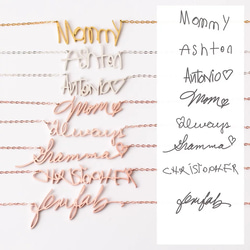 Mommy
Ashton
Antonio♡
Mome
always
Gramma♡
CHRISTOPHER
Mommy
Ashton
Antonio♡
Mome
always
Gramma♡
CHRISTOPHER